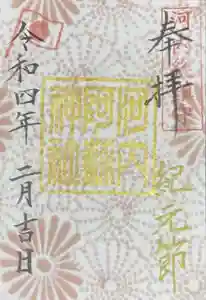 奉拝
紀元節
河内
阿蘇
神社
令和四年 二月吉日